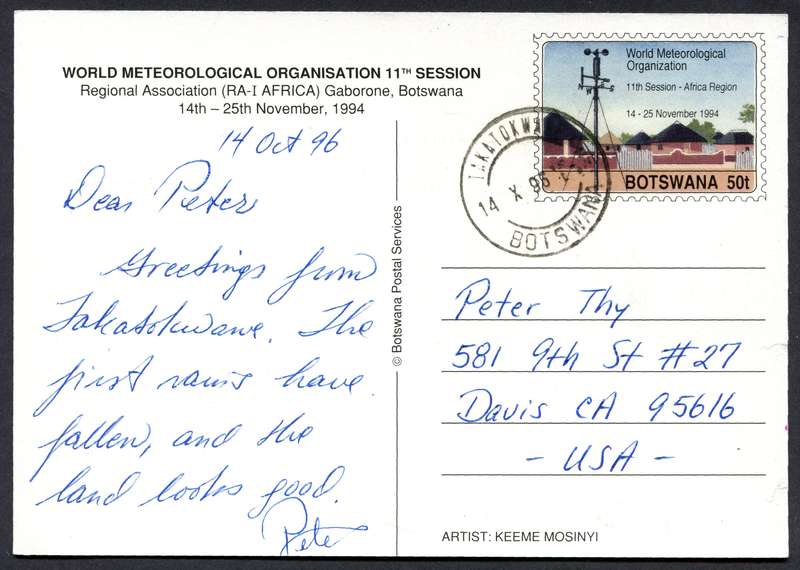 WORLD METEOROLOGICAL ORGANISATION 11TH SESSION
Regional Association (RA-I AFRICA) Gaborone, Botswana
14th – 25th November, 1994
14 Oct 96
Dear Peter
Greetings from
Takatokwane. The
first rains have
fallen, and the
land looks good.
Pete
© Botswana Postal Services
World Meteorological
Organization
11th Session - Africa Region
14 - 25 November 1994
BOTSWANA 50t
14 X 96
BOTSWANA
Peter Thy
581 9th St #27
Davis CA 95616
- USA -
ARTIST: KEEME MOSINYI